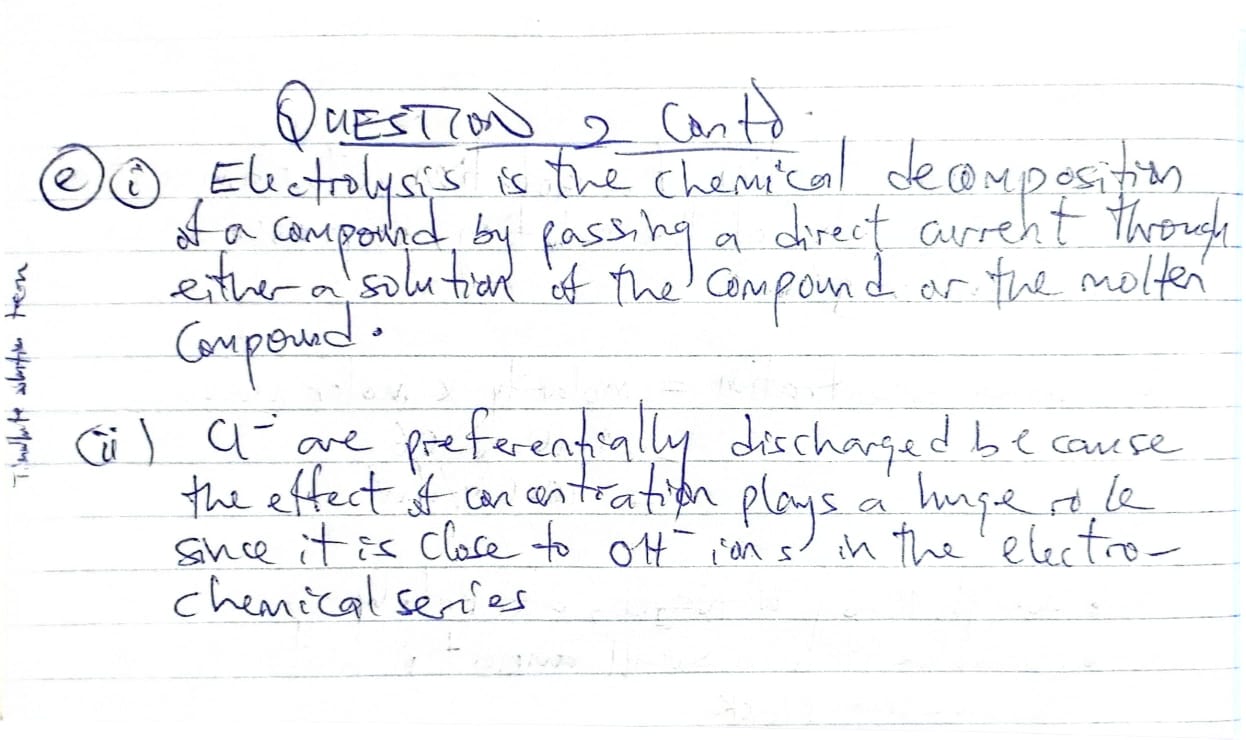 QUESTION 2 Contd.
(e) (i) Electrolysis is the chemical decomposition
of a compound by passing a direct current through
either a solution of the compound or the molten
compound.
(ii) Cl⁻ are preferentially discharged because
the effect of concentration plays a huge role
since it is close to OH⁻ ions in the electro-
chemical series